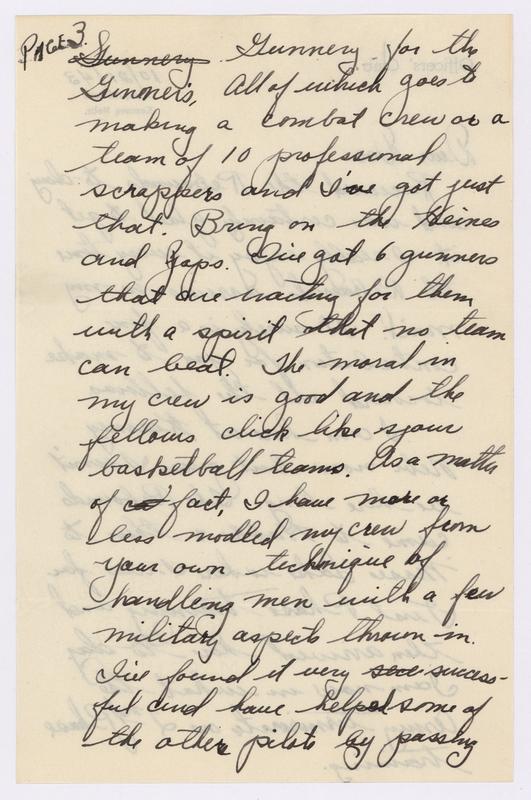 Page 3.
Gunnery. Gunnery for the
Gunners, All of which goes to
making a combat crew or a
team of 10 professional
scrappers and I've got just
that. Bring on the Heines
and Japs. I've got 6 gunners
that are waiting for them
with a spirit that no team
can beat. The moral in
my crew is good and the
fellows click like your
basketball teams. As a matter
of fact, I have more or
less modled my crew from
your own technique of
handling men with a few
military aspects thrown in.
I've found it very success-
ful and have helped some of
the other pilots by passing